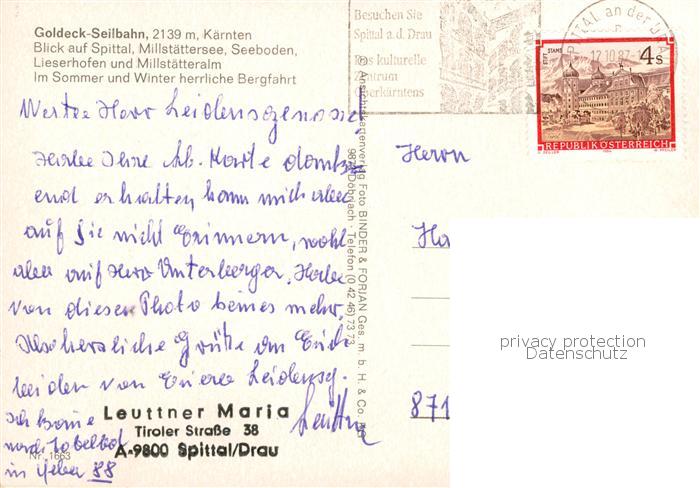 Goldeck-Seilbahn, 2139 m, Kärnten
Blick auf Spittal, Millstättersee, Seeboden,
Lieserhofen und Millstätteralm
Im Sommer und Winter herrliche Bergfahrt
Besuchen Sie
Spittal a.d. Drau
Das kulturelle
Zentrum
Oberkärntens
SPITTAL an der DRAU
12.10.87
STIFT STAMS
4 S
REPUBLIK ÖSTERREICH
Werter Herr Leidensgenosse
Habe Ihre lb. Karte dank
end erhalten, kann mich aber
auf Sie nicht Erinnern, wohl
aber auf Herr Unterberger. Habe
von diesen Photo keines mehr.
Also herzliche Grüße an Euch
beiden von Eurer Leidensg.
Leuttner
Ich komme
nach Tobelbad
in Feber 88
Leuttner Maria
Tiroler Straße 38
A-9800 Spittal/Drau
Nr. 1663
© Ansichtskartenverlag Foto BINDER & FORJAN Ges. m. b. H. & Co. KG
9873 Döbriach - Telefon (0 42 46) 73 73
Herrn
871
privacy protection
Datenschutz